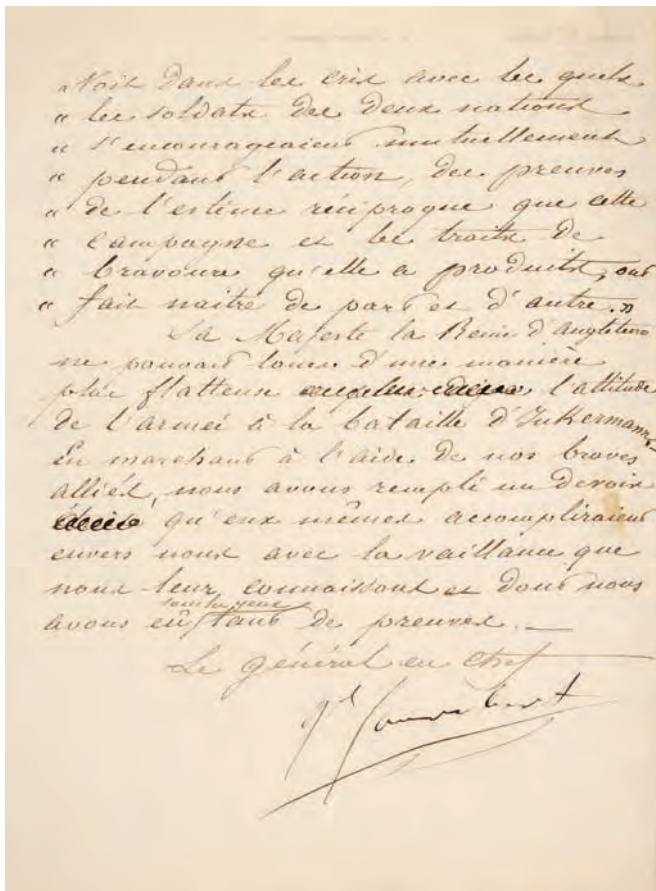 "Voit dans les cris avec les quels
" les soldats des deux nations
" s'encourageaient mutuellement
" pendant l'action, des preuves
" de l'estime réciproque que cette
" Campagne et les traits de
" bravoure qu'elle a produits, ont
" fait naître de part et d'autre."
Sa Majesté la Reine d'Angleterre
ne pouvait louer d'une manière
plus flatteuse l'attitude
de l'armée à la bataille d'Inkermann.
En marchant à l'aide de nos braves
alliés, nous avons rempli un devoir
qu'eux mêmes accompliraient
envers nous avec la vaillance que
nous leur connaissons et dont nous
sous les yeux
avons eû tant de preuves. _
Le général en chef
Gal Canrobert